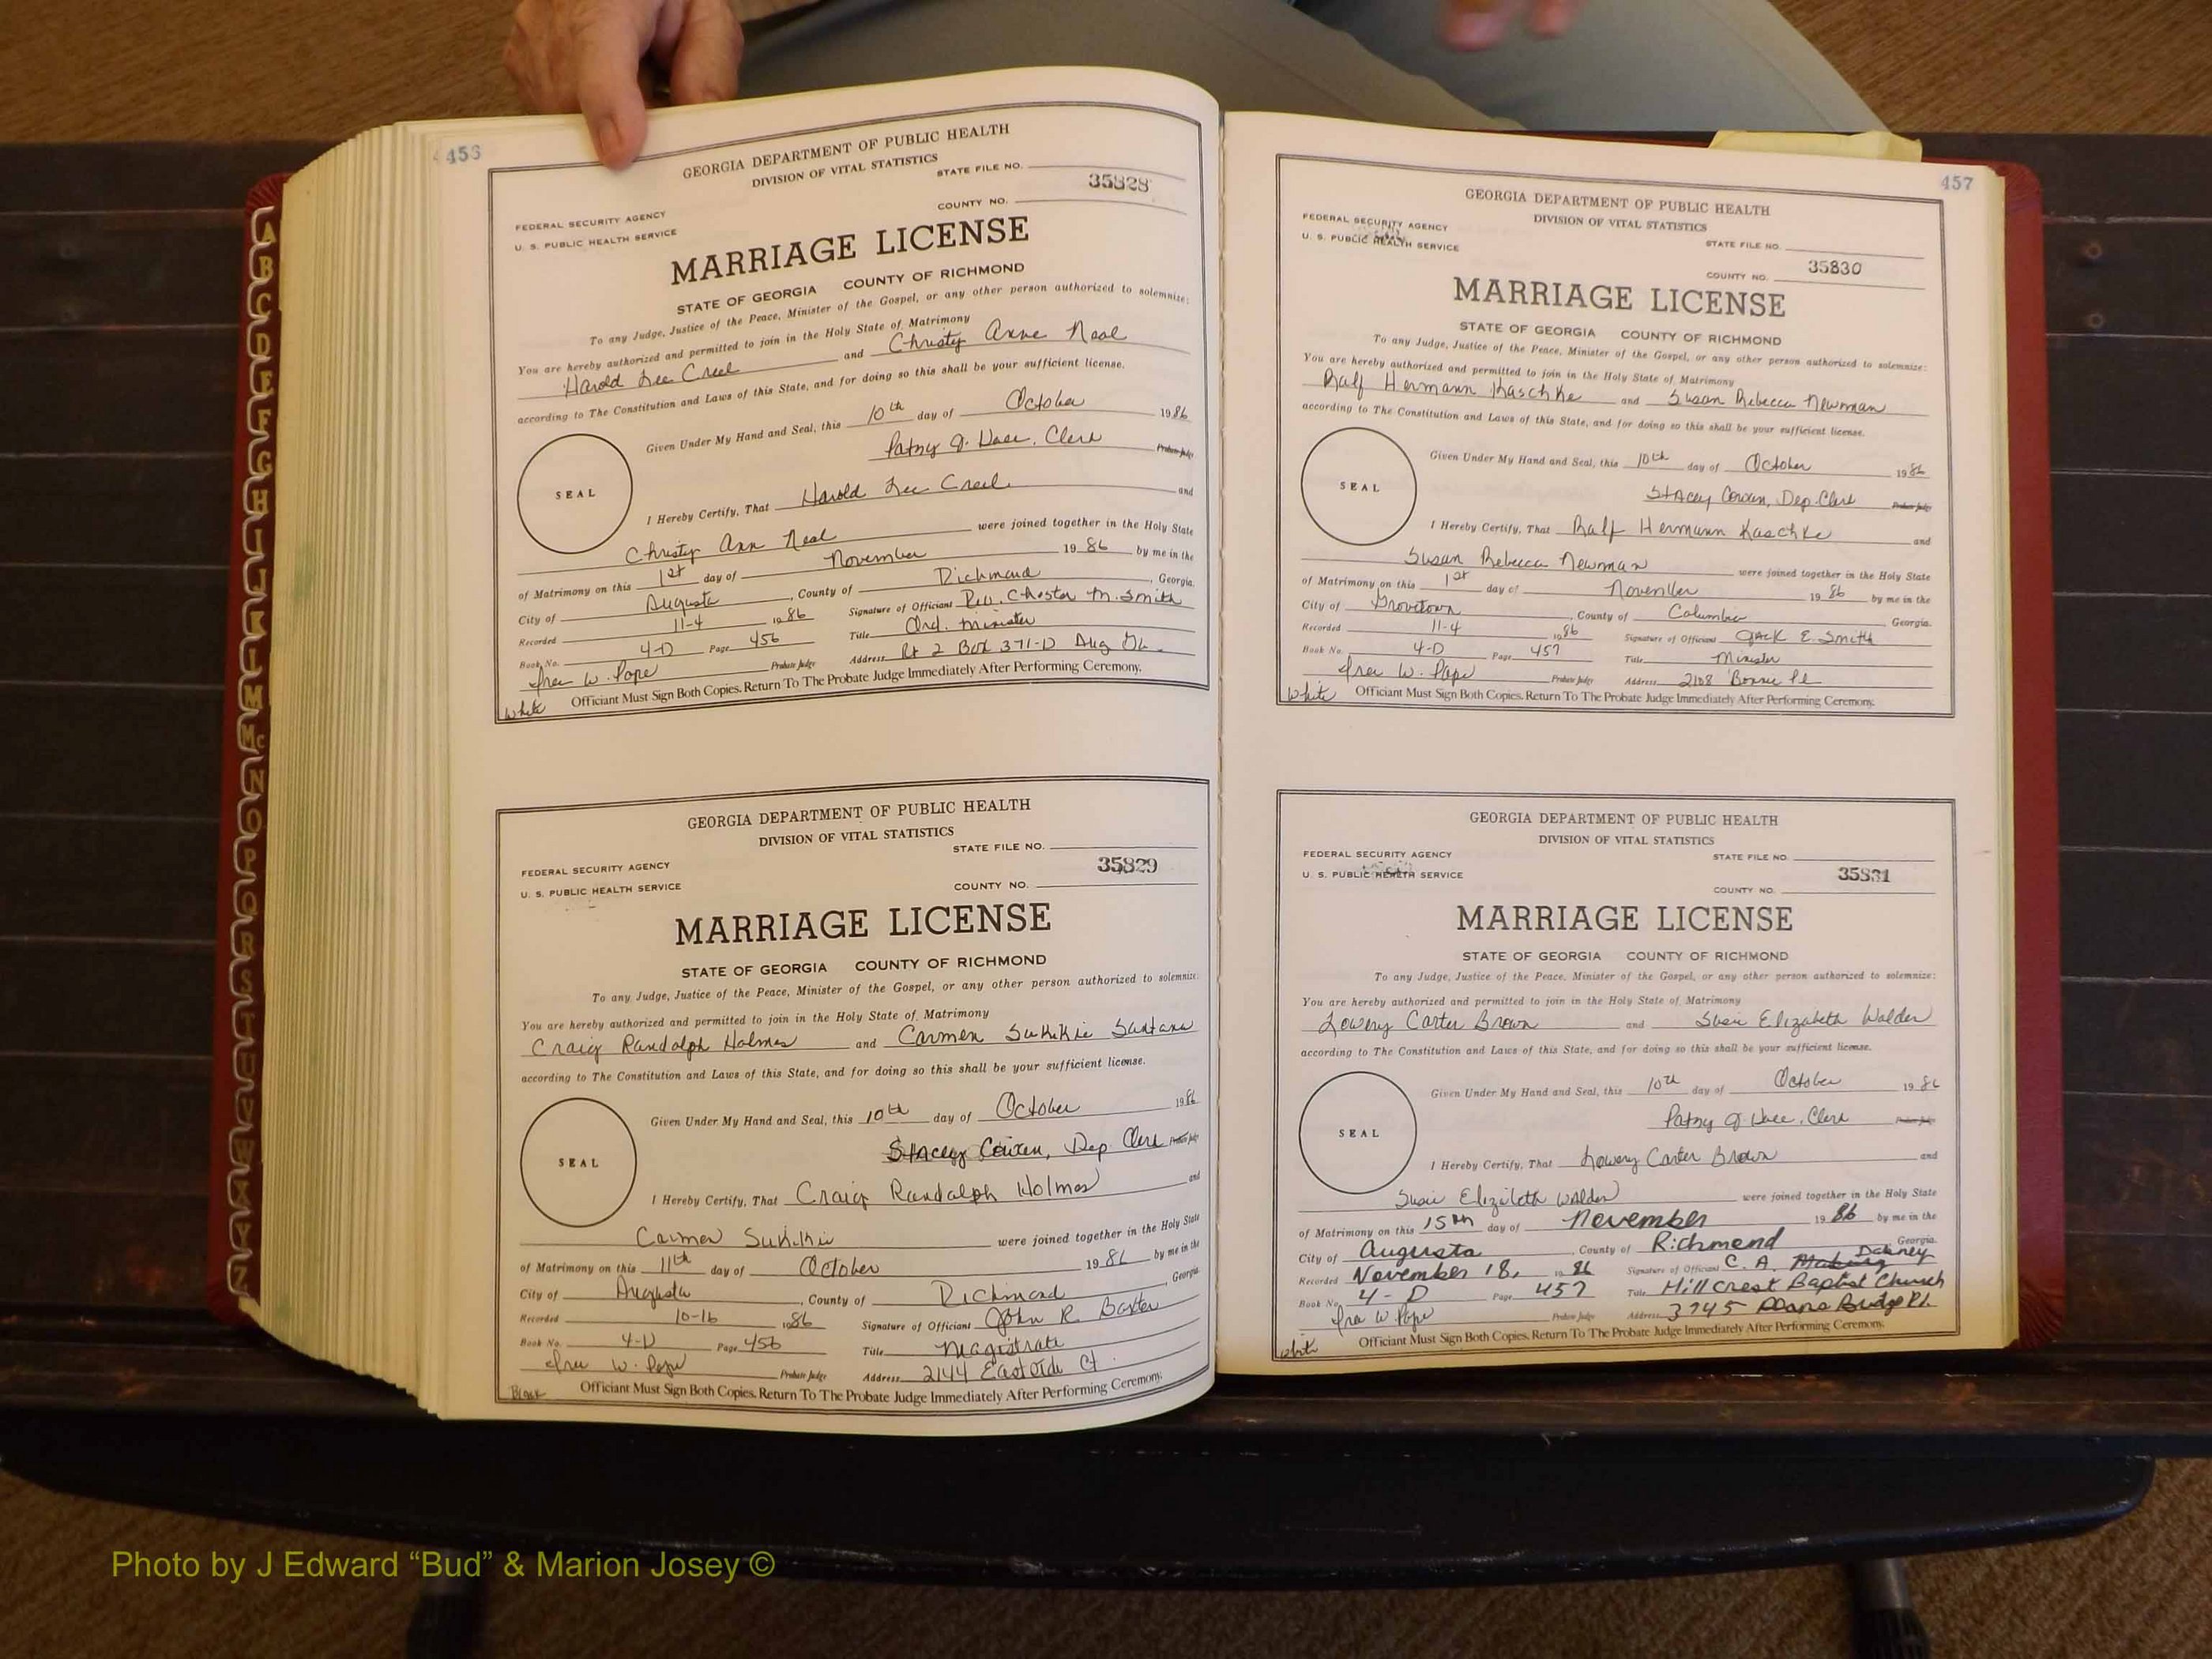 456
GEORGIA DEPARTMENT OF PUBLIC HEALTH
DIVISION OF VITAL STATISTICS
STATE FILE NO.
35828
FEDERAL SECURITY AGENCY
U. S. PUBLIC HEALTH SERVICE
COUNTY NO.
MARRIAGE LICENSE
STATE OF GEORGIA COUNTY OF RICHMOND
To any Judge, Justice of the Peace, Minister of the Gospel, or any other person authorized to solemnize:
You are hereby authorized and permitted to join in the Holy State of Matrimony
Harold Lee Creel and Christy Anne Neal
according to The Constitution and Laws of this State, and for doing so this shall be your sufficient license.
Given Under My Hand and Seal, this 10th day of October 1986
Patsy J. Clerk Probate Judge
SEAL
I Hereby Certify, That Harold Lee Creel and
Christy Ann Neal were joined together in the Holy State
of Matrimony on this 1st day of November 19 86 by me in the
City of Augusta, County of Richmond, Georgia.
Recorded 11-4 1986 Signature of Officiant Rev. Chester M. Smith
Book No. 4-D Page 456 Title Ord. Minister
W. Pope Probate Judge Address Rt 2 Box 371-D Aug Ga.
White Officiant Must Sign Both Copies. Return To The Probate Judge Immediately After Performing Ceremony.
GEORGIA DEPARTMENT OF PUBLIC HEALTH
DIVISION OF VITAL STATISTICS
STATE FILE NO.
35829
FEDERAL SECURITY AGENCY
U. S. PUBLIC HEALTH SERVICE
COUNTY NO.
MARRIAGE LICENSE
STATE OF GEORGIA COUNTY OF RICHMOND
To any Judge, Justice of the Peace, Minister of the Gospel, or any other person authorized to solemnize:
You are hereby authorized and permitted to join in the Holy State of Matrimony
Craig Randolph Holmes and Carmen Sukikie Santana
according to The Constitution and Laws of this State, and for doing so this shall be your sufficient license.
Given Under My Hand and Seal, this 10th day of October 1986
Stacey Cowen, Dep. Clerk Probate Judge
SEAL
I Hereby Certify, That Craig Randolph Holmes and
Carmen Sukikie were joined together in the Holy State
of Matrimony on this 11th day of October 1986 by me in the
City of Augusta, County of Richmond, Georgia
Recorded 10-16 1986 Signature of Officiant John R. Baxter
Book No. 4-D Page 456 Title Magistrate
W. Pope Probate Judge Address 2144 Eastside Ct.
Black Officiant Must Sign Both Copies. Return To The Probate Judge Immediately After Performing Ceremony.
457
GEORGIA DEPARTMENT OF PUBLIC HEALTH
DIVISION OF VITAL STATISTICS
FEDERAL SECURITY AGENCY
U. S. PUBLIC HEALTH SERVICE
STATE FILE NO.
35830
COUNTY NO.
MARRIAGE LICENSE
STATE OF GEORGIA COUNTY OF RICHMOND
To any Judge, Justice of the Peace, Minister of the Gospel, or any other person authorized to solemnize:
You are hereby authorized and permitted to join in the Holy State of Matrimony
Ralf Hermann Kaschke and Susan Rebecca Newman
according to The Constitution and Laws of this State, and for doing so this shall be your sufficient license.
Given Under My Hand and Seal, this 10th day of October 1986
Stacey Cowen, Dep. Clerk Probate Judge
SEAL
I Hereby Certify, That Ralf Hermann Kaschke and
Susan Rebecca Newman were joined together in the Holy State
of Matrimony on this 1st day of November 1986 by me in the
City of Grovetown, County of Columbia Georgia.
Recorded 11-4 1986 Signature of Officiant Jack E. Smith
Book No. 4-D Page 457 Title Minister
W. Pope Probate Judge Address 2108 Bonnie Pl
White Officiant Must Sign Both Copies. Return To The Probate Judge Immediately After Performing Ceremony.
GEORGIA DEPARTMENT OF PUBLIC HEALTH
DIVISION OF VITAL STATISTICS
FEDERAL SECURITY AGENCY
U. S. PUBLIC HEALTH SERVICE
STATE FILE NO.
35831
COUNTY NO.
MARRIAGE LICENSE
STATE OF GEORGIA COUNTY OF RICHMOND
To any Judge, Justice of the Peace, Minister of the Gospel, or any other person authorized to solemnize:
You are hereby authorized and permitted to join in the Holy State of Matrimony
Lowery Carter Brown and Susie Elizabeth Walden
according to The Constitution and Laws of this State, and for doing so this shall be your sufficient license.
Given Under My Hand and Seal, this 10th day of October 1986
Patsy J. Clerk Probate Judge
SEAL
I Hereby Certify, That Lowery Carter Brown and
Susie Elizabeth Walden were joined together in the Holy State
of Matrimony on this 15th day of November 19 86 by me in the
City of Augusta, County of Richmond Georgia.
Recorded November 18, 1986 Signature of Officiant C. A. Dabney
Book No. 4-D Page 457 Title Hillcrest Baptist Church
W Pope Probate Judge Address 3745
White Officiant Must Sign Both Copies. Return To The Probate Judge Immediately After Performing Ceremony.
A
B
C
D
E
F
G
H
I
J
K
L
M
Mc
N
O
P
Q
R
S
T
U
V
W
X
Y
Z
Photo by J Edward “Bud” & Marion Josey ©